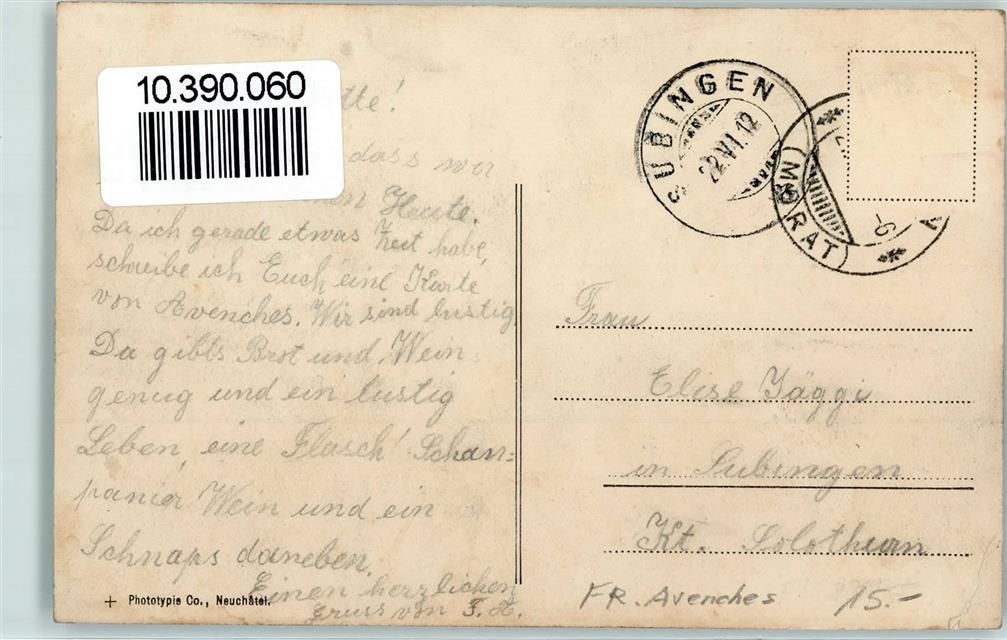 10.390.060
dass wir
Heute.
Da ich gerade etwas Zeit habe,
schreibe ich Euch eine Karte
von Avenches. Wir sind lustig
Da gibts Brot und Wein
genug und ein lustig
Leben, eine Flasch! Schan=
panier Wein und ein
Schnaps daneben.
Einen herzlichen
Gruss von F. A.
+ Phototypie Co., Neuchâtel.
SUBINGEN
22.VI.12
(MORAT)
Frau
Elise Jäggi
in Subingen
Kt. Solothurn
FR. Avenches 15.-